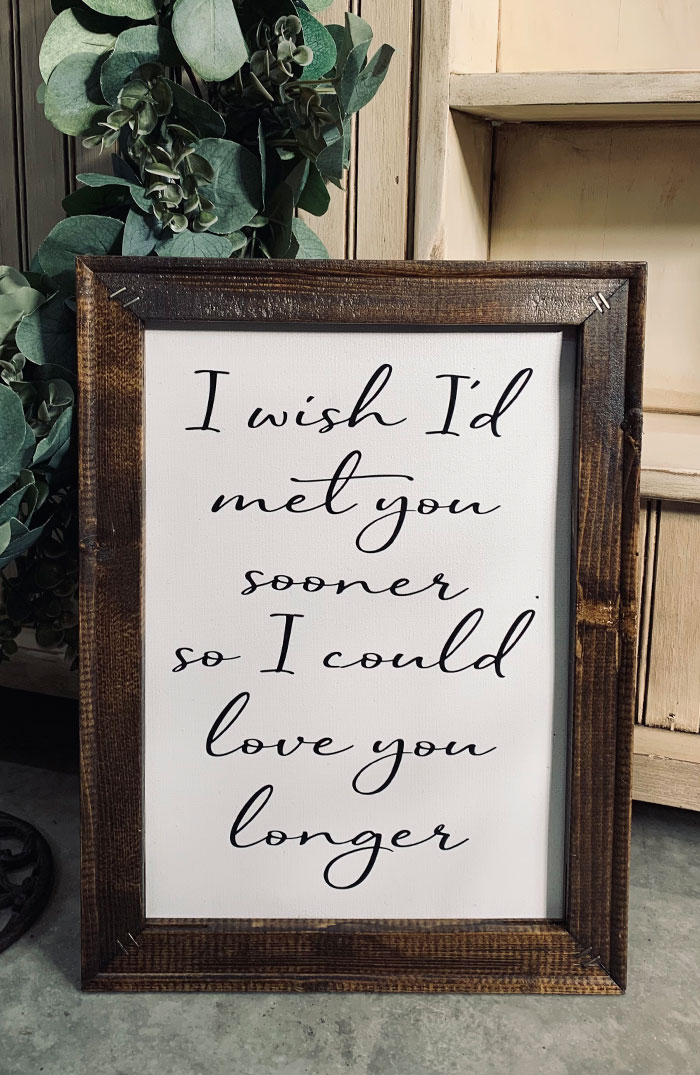 I wish I'd
met you
sooner
so I could
love you
longer